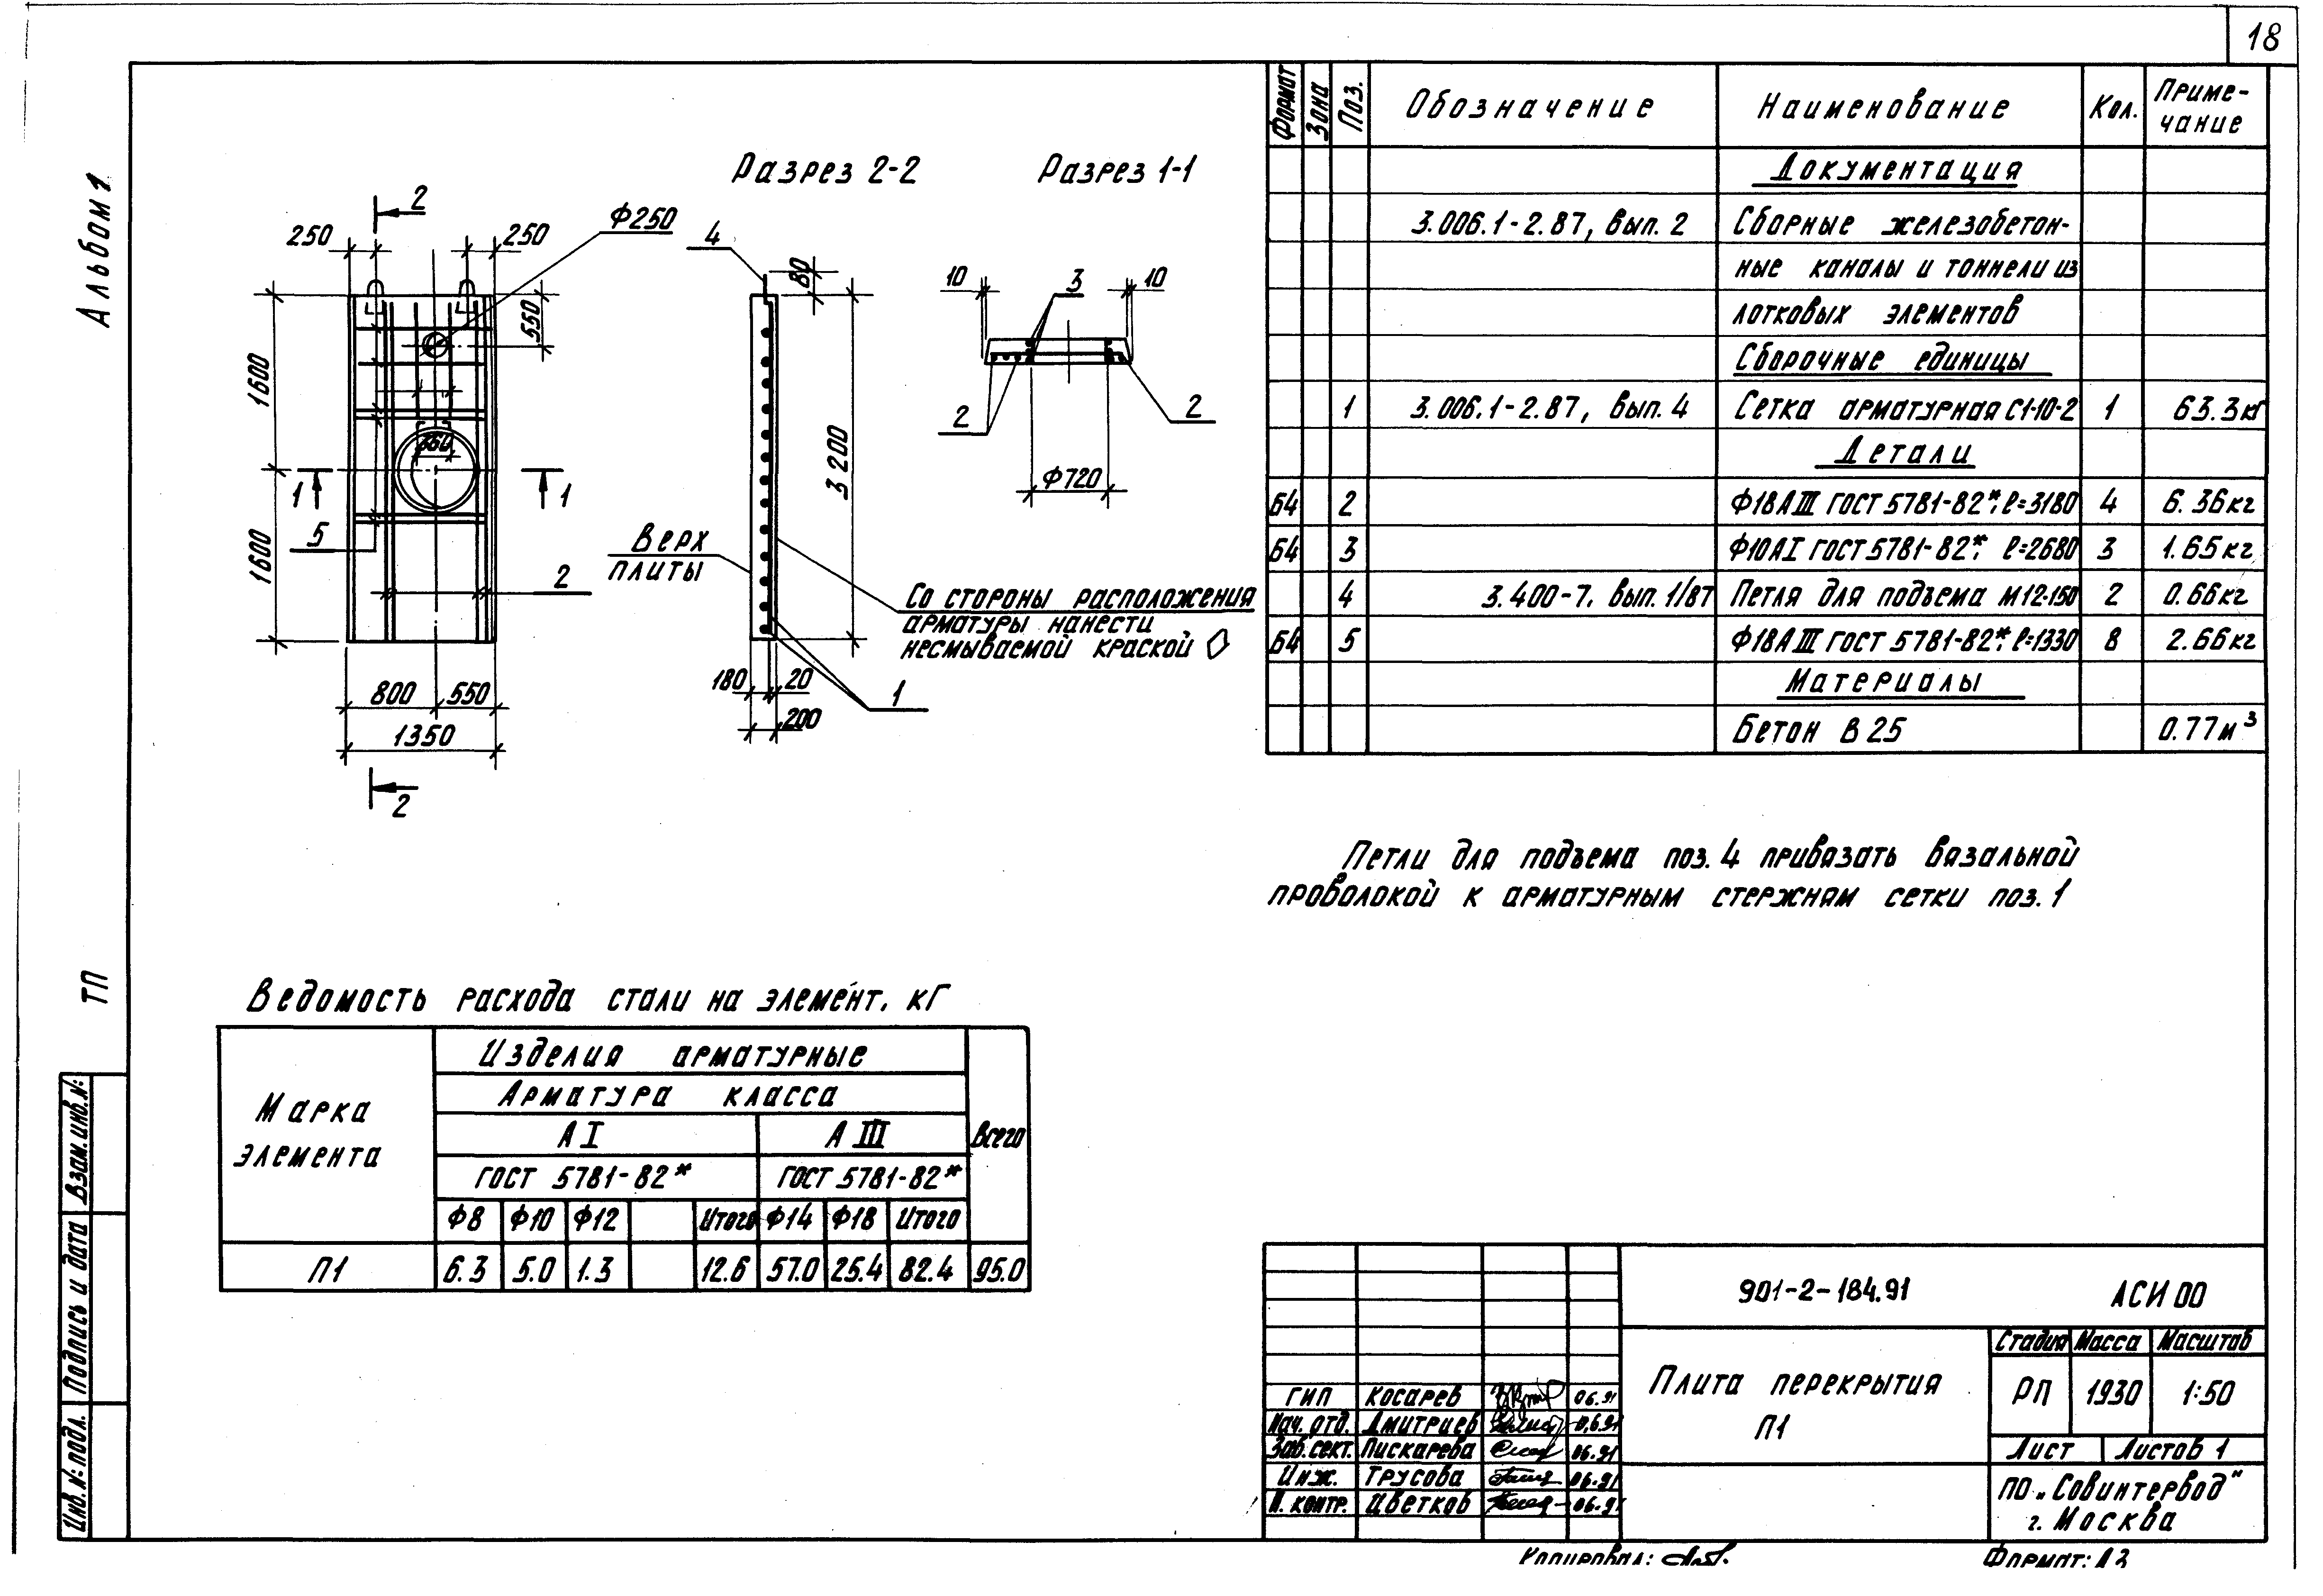 18
Альбом 1
ТП
Взам. инв. №:
Подпись и дата
Инв. №: подл.
Разрез 2-2
Разрез 1-1
2
250
250
Ф250
550
1600
1600
360
1
1
5
2
800
550
1350
2
4
80
3200
Верх
плиты
180
20
200
1
Со стороны расположения
арматуры нанести
несмываемой краской
10
3
10
2
2
Ф720
Формат Зона Поз. Обозначение Наименование Кол. Приме-
чание
Документация
3.006.1-2.87, вып. 2 Сборные железобетон-
ные каналы и тоннели из
лотковых элементов
Сборочные единицы
1 3.006.1-2.87, вып. 4 Сетка арматурная С1-10-2 1 63.3 кг
Детали
Б4 2 Ф18АIII ГОСТ 5781-82*, ℓ=3180 4 6.36 кг
Б4 3 Ф10АI ГОСТ 5781-82*, ℓ=2680 3 1.65 кг
4 3.400-7. вып. 1/87 Петля для подъема М12-150 2 0.66 кг
Б4 5 Ф18АIII ГОСТ 5781-82*, ℓ=1330 8 2.66 кг
Материалы
Бетон В25 0.77 м³
Петли для подъема поз. 4 привязать вязальной
проволокой к арматурным стержням сетки поз. 1
Ведомость расхода стали на элемент, кг
Марка
элемента
Изделия арматурные
Арматура класса
АI АIII Всего
ГОСТ 5781-82* ГОСТ 5781-82*
Ф8 Ф10 Ф12 Итого Ф14 Ф18 Итого
П1 6.3 5.0 1.3 12.6 57.0 25.4 82.4 95.0
901-2-184.91 АСИ 00
Стадия Масса Масштаб
Плита перекрытия
П1
РП 1930 1:50
Лист Листов 1
ПО „Совинтервод"
г. Москва
ГИП Косарев 06.91
Нач. отд. Дмитриев 0,6.91
Зав. сект. Пискарева 06.91
Инж. Трусова 06.91
Н. контр. Цветков 06.91
Копировал:
Формат: А3